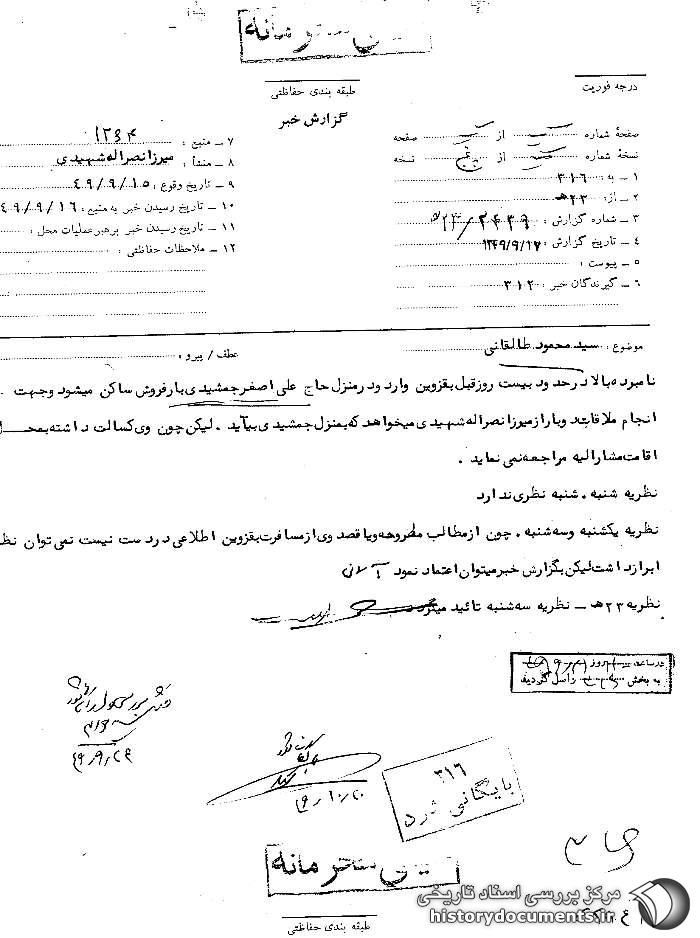 خیلی محرمانه
طبقه بندی حفاظتی
درجه فوریت
گزارش خبر
صفحهٔ شماره یک از یک صفحه
نسخهٔ شماره از پنج نسخه
۱ ـ به : ۳۱۶
۲ ـ از : ۲۲هـ
۳ ـ شماره گزارش :
۴ ـ تاریخ گزارش : ۱۳۴۹/۹/۱۷
۵ ـ پیوست :
۶ ـ گیرندگان خبر : ۳۱۲
۷ ـ منبع : ۱۲۶۴
۸ ـ منشأ : میرزا نصراله شهیدی
۹ ـ تاریخ وقوع : ۴۹/۹/۱۵
۱۰ ـ تاریخ رسیدن خبر به منبع : ۴۹/۹/۱۶
۱۱ ـ تاریخ رسیدن خبر برهبر عملیات محل :
۱۲ ـ ملاحظات حفاظتی :
موضوع : سید محمود طالقانی
عطف / پیرو :
نامبرده بالا در حدود بیست روز قبل بقزوین وارد و در منزل حاج علی اصغر جمشیدی بارفروش ساکن میشود و جهت
انجام ملاقات دوبار از میرزا نصراله شهیدی میخواهد که بمنزل جمشیدی بیآید . لیکن چون وی کسالت داشته بمحل
اقامت مشارالیه مراجعه نمی نماید .
نظریه شنبه . شنبه نظری ندارد
نظریه یکشنبه و سه شنبه . چون از مطالب مطروحه و یا قصد وی از مسافرت بقزوین اطلاعی در دست نیست نمی توان نظ
ابراز داشت لیکن بگزارش خبر میتوان اعتماد نمود
نظریه ۲۳هـ ـ نظریه سه شنبه تائید میگردد
در ساعت روز
به بخش واصل گردید
۴۹/۹/۲۴
۴۹/۱۰/۲۰
۳۱۶
بایگانی شود
خیلی محرمانه
طبقه بندی حفاظتی
مرکز بررسی اسناد تاریخی
historydocuments.ir